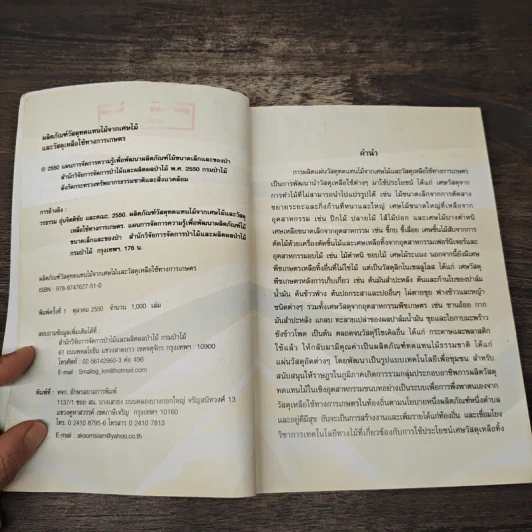 ผลิตภัณฑ์วัสดุทดแทนไม้จากเศษไม้
และวัสดุเหลือใช้ทางการเกษตร
© 2550 แผนการจัดการความรู้เพื่อพัฒนาผลิตภัณฑ์ไม้ขนาดเล็กและของป่า
สำนักวิจัยการจัดการป่าไม้และผลิตผลป่าไม้ พ.ศ. 2550 กรมป่าไม้
สังกัดกระทรวงทรัพยากรธรรมชาติและสิ่งแวดล้อม
การอ้างอิง :
วรธรรม อุ่นจิตติชัย และคณะ. 2550. ผลิตภัณฑ์วัสดุทดแทนไม้จากเศษไม้และวัสดุ
เหลือใช้ทางการเกษตร. แผนการจัดการความรู้เพื่อพัฒนาผลิตภัณฑ์ไม้
ขนาดเล็กและของป่า สำนักวิจัยการจัดการป่าไม้และผลิตผลป่าไม้
กรมป่าไม้ กรุงเทพฯ. 176 น.
ผลิตภัณฑ์วัสดุทดแทนไม้จากเศษไม้และวัสดุเหลือใช้ทางการเกษตร
ISBN : 978-9747627-51-0
พิมพ์ครั้งที่ 1 ตุลาคม 2550 จำนวน 1,000 เล่ม
สอบถามข้อมูลเพิ่มเติมได้ที่ :
สำนักวิจัยการจัดการป่าไม้และผลิตผลป่าไม้ กรมป่าไม้
61 ถนนพหลโยธิน แขวงลาดยาว เขตจตุจักร กรุงเทพฯ 10900
โทรศัพท์ : 02-56142960-3 ต่อ 496
E-mail : Smallog_km@hotmail.com
พิมพ์ที่ : หจก. อักษรสยามการพิมพ์
1137/1 ซอย สน. บางเสาธง ถนนตลองบางกอกใหญ่ จรัญสนิทวงศ์ 13
แขวงคูหาสวรรค์ เขตภาษีเจริญ กรุงเทพฯ 10160
โทร. 0 2410 8795-6 โทรสาร 0 2410 7813
E-mail : aksornsiam@yahoo.co.th
คำนำ
การผลิตแผ่นวัสดุทดแทนไม้จากเศษไม้และวัสดุเหลือใช้ทางการเกษตร
เป็นการพัฒนานำวัสดุเหลือใช้ต่างๆ มาใช้ประโยชน์ ได้แก่ เศษวัสดุจาก
การทำไม้ที่ไม่สามารถนำไปแปรรูปได้ เช่น ไม้ขนาดเล็กจากการตัดสาง
ขยายระยะและกิ่งก้านที่หนาและใหญ่ เศษไม้ขนาดใหญ่ที่เหลือจาก
อุตสาหกรรม เช่น ปีกไม้ ปลายไม้ ไส้ไม้ปอก และเศษไม้บางตำหนิ
เศษเหลือขนาดเล็กจากอุตสาหกรรม เช่น ขี้กบ ขี้เลื่อย เศษชิ้นไม้สับจากการ
ตัดไม้ด้วยเครื่องตัดชิ้นไม้และเศษเหลือทิ้งจากอุตสาหกรรมเฟอร์นิเจอร์และ
อุตสาหกรรมอบไม้ เช่น ไม้ตำหนิ ขอบไม้ เศษไม้ระแนง นอกจากนี้ยังมีเศษ
พืชเกษตรเหลือทิ้งอื่นที่ไม่ใช่ไม้ แต่เป็นวัสดุลิกโนเซลลูโลส ได้แก่ เศษวัสดุ
พืชเกษตรหลังการเก็บเกี่ยว เช่น ต้นมันสำปะหลัง ต้นและก้านใบของปาล์ม
น้ำมัน ต้นข้าวฟ่าง ต้นปอกระสาและปออื่นๆ ไผ่ตายขุย ฟางข้าวและหญ้า
ชนิดต่างๆ รวมทั้งเศษวัสดุจากอุตสาหกรรมพืชเกษตร เช่น ชานอ้อย กาก
มันสำปะหลัง แกลบ ทะลายเปล่าของผลปาล์มน้ำมัน ขุยและใยกาบมะพร้าว
ซังข้าวโพด เป็นต้น ตลอดจนวัสดุรีไซเคิลอื่น ได้แก่ กระดาษและพลาสติก
ใช้แล้ว ให้กลับมามีคุณค่าเป็นผลิตภัณฑ์ทดแทนไม้ธรรมชาติ ได้แก่
แผ่นวัสดุอัดต่างๆ โดยพัฒนาเป็นรูปแบบเทคโนโลยีเพื่อชุมชน สำหรับ
สนับสนุนให้ราษฎรในภูมิภาคเกิดการรวมกลุ่มประกอบอาชีพการผลิตวัสดุ
ทดแทนไม้ในเชิงอุตสาหกรรมชนบทอย่างเป็นระบบเพื่อการพึ่งพาตนเองจาก
วัสดุเหลือใช้ทางการเกษตรในท้องถิ่นตามนโยบายหนึ่งผลิตภัณฑ์หนึ่งตำบล
และอยู่ดีมีสุข อันจะเป็นการสร้างงานและเพิ่มรายได้แก่ท้องถิ่น และเชื่อมโยง
วิชาการเทคโนโลยีทางไม้ที่เกี่ยวข้องกับการใช้ประโยชน์เศษวัสดุเหลือทิ้ง